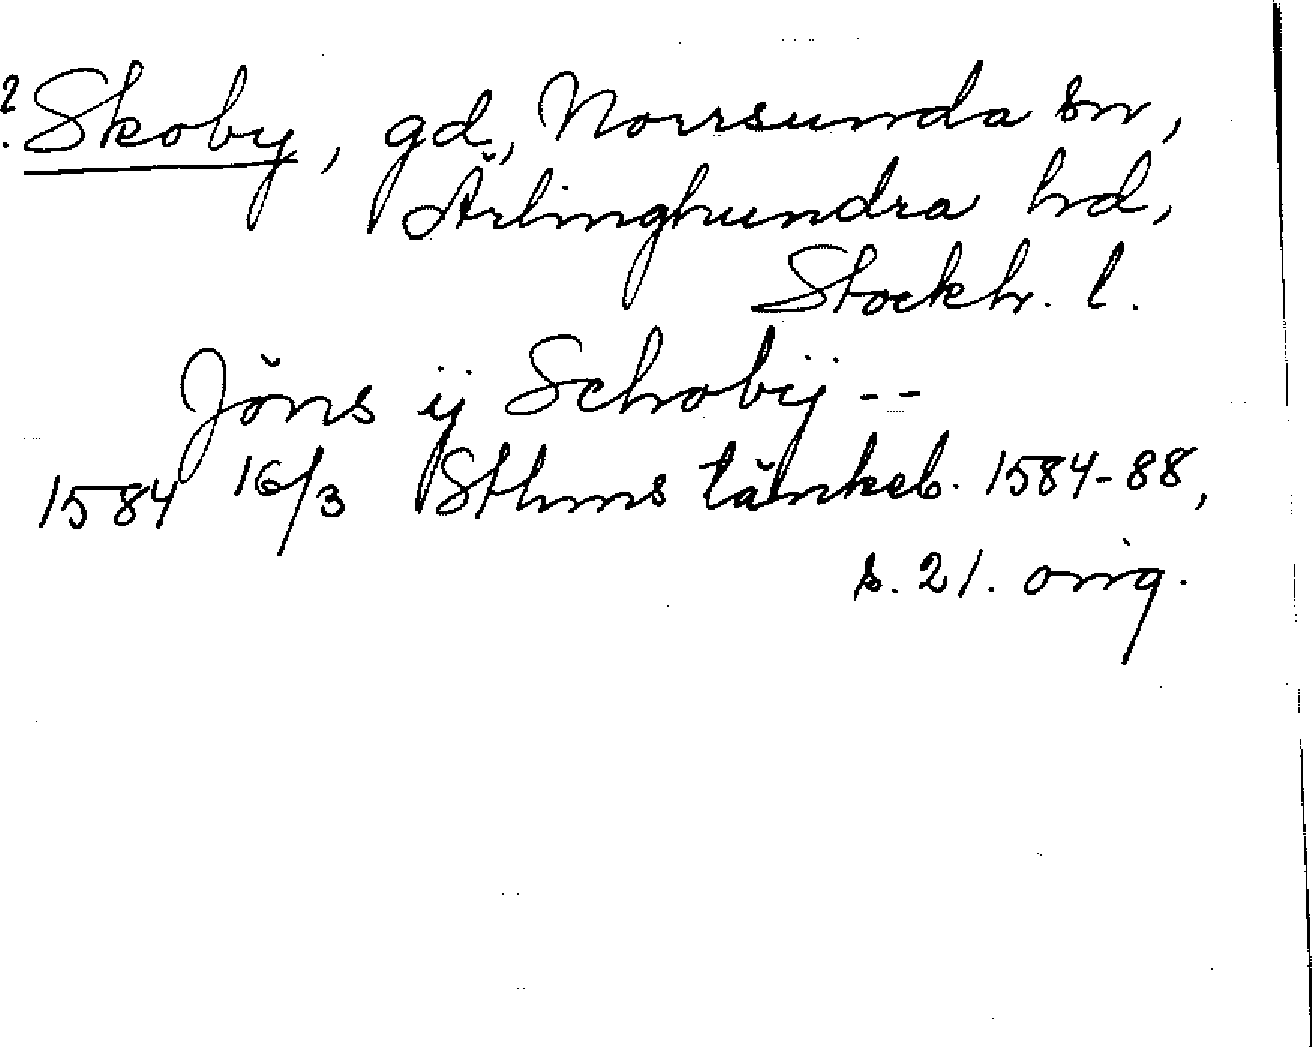 ? Skoby, gd, Norrsunda sn,
Ärlinghundra hd,
Stockh. l.
Jöns ij Schobij --
1584 16/3 Sthms tänkeb. 1584-88,
s. 21. orig.